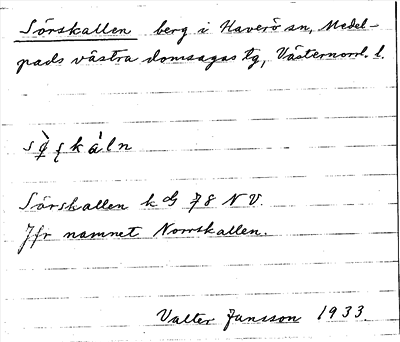 Sörskallen berg i Haverö sn, Medel-
pads västra domsagas tg, Västernorrl. l.
Sörskallen k 78 NV.
Jfr namnet Norrskallen.
Valter Jansson 1933.